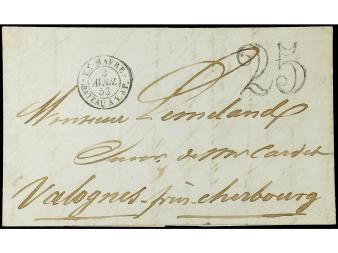 LE HAVRE
3
AVRIL
53
BATEAU A VAP.
25
Monsieur
de Mr
Valognes près cherbourg